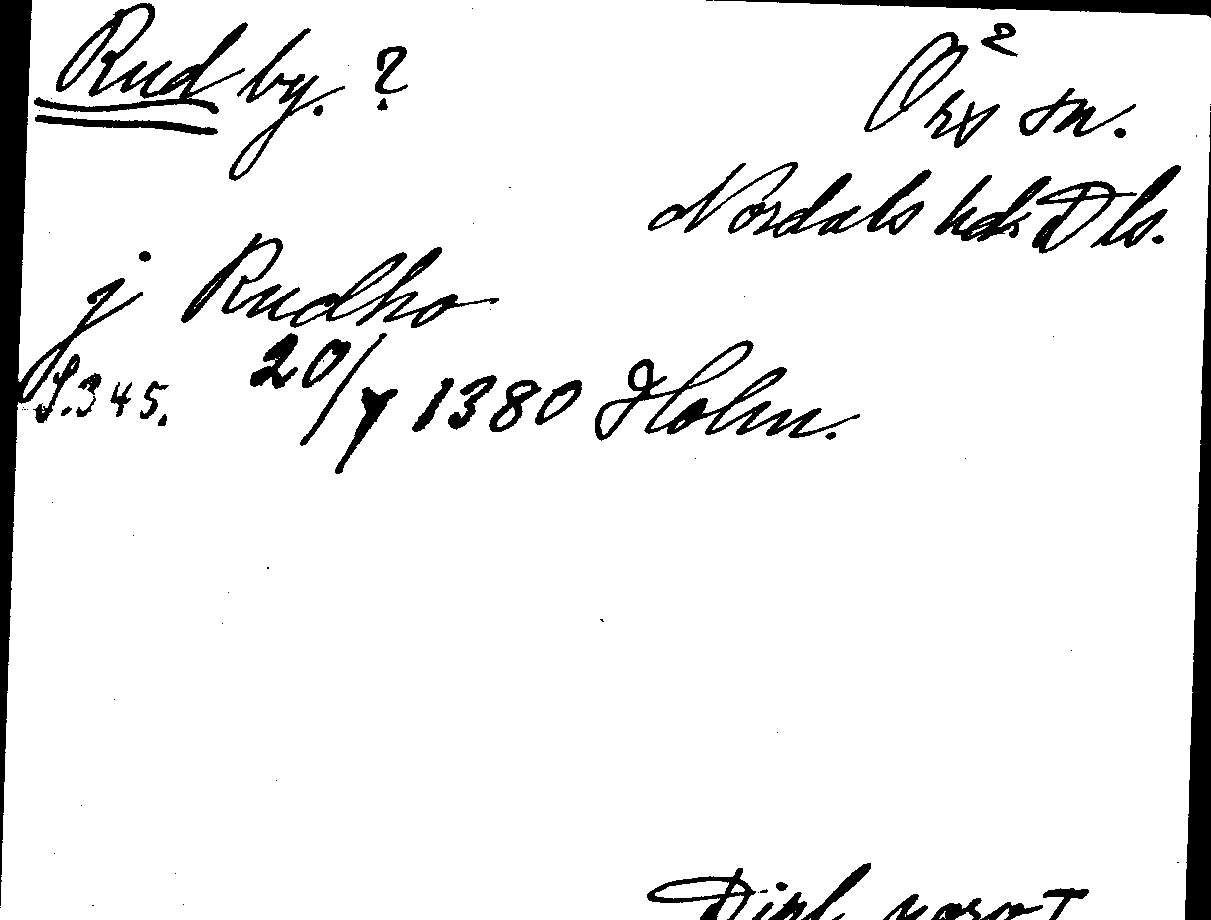 Rud by. ?
Örs sn.
Nordals hd. Dls.
j Rudho
S. 345. 20/7 1380 Holm.
Dipl. norv. I